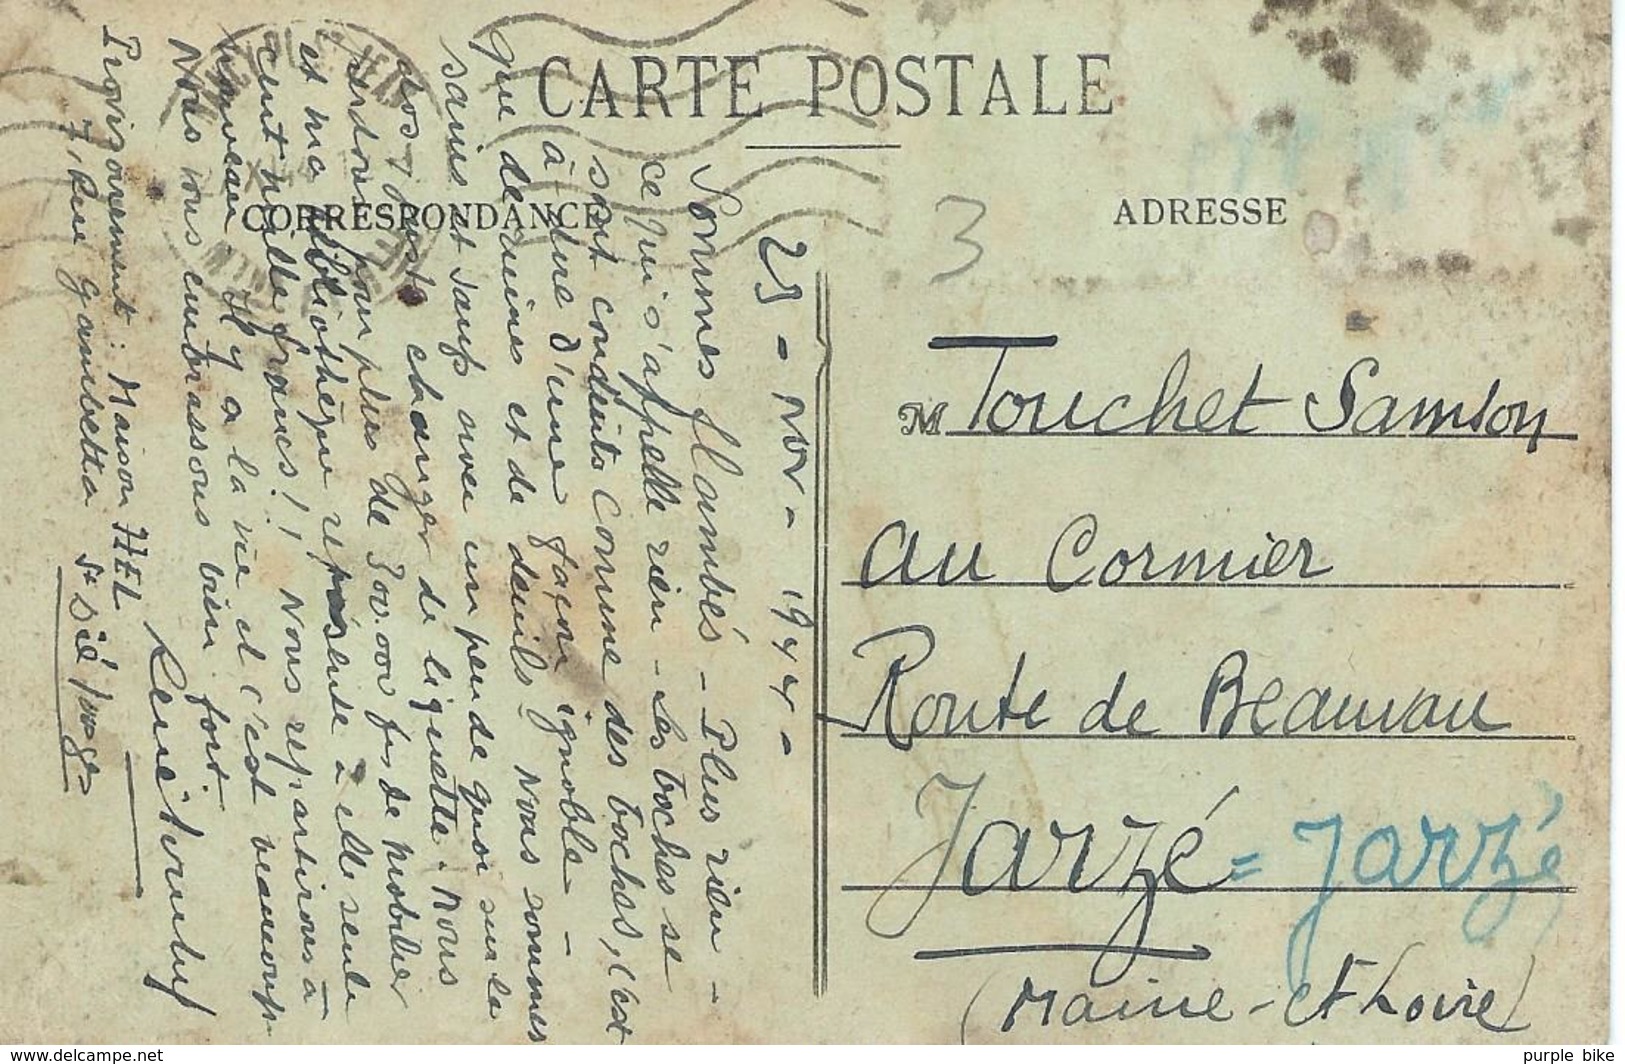 CARTE POSTALE
CORRESPONDANCE
ADRESSE
3
25 - Nov - 1944 -
Sommes flambés - Plus rien -
ce qui s'appelle rien - Les boches se
sont conduits comme des boches, c'est
à dire d'une façon ignoble -
que de ruines et de deuils. Nous sommes
sains et saufs avec un peu de quoi sur le
dos, juste changer de liquette. Nous
perdons plus de 300.000 frs de mobilier
et ma bibliothèque représente à elle seule
cent mille francs!! Nous repartirons à
nouveau. Il y a la vie et c'est beaucoup
Nous vous embrassons bien fort
René
Provisoirement : Maison HEL
7, Rue Gambetta St Dié Vosges
M Touchet Samson
au Cormier
Route de Beauvau
Jarzé = Jarzé
(Maine-et-Loire)
www.delcampe.net
purple bike